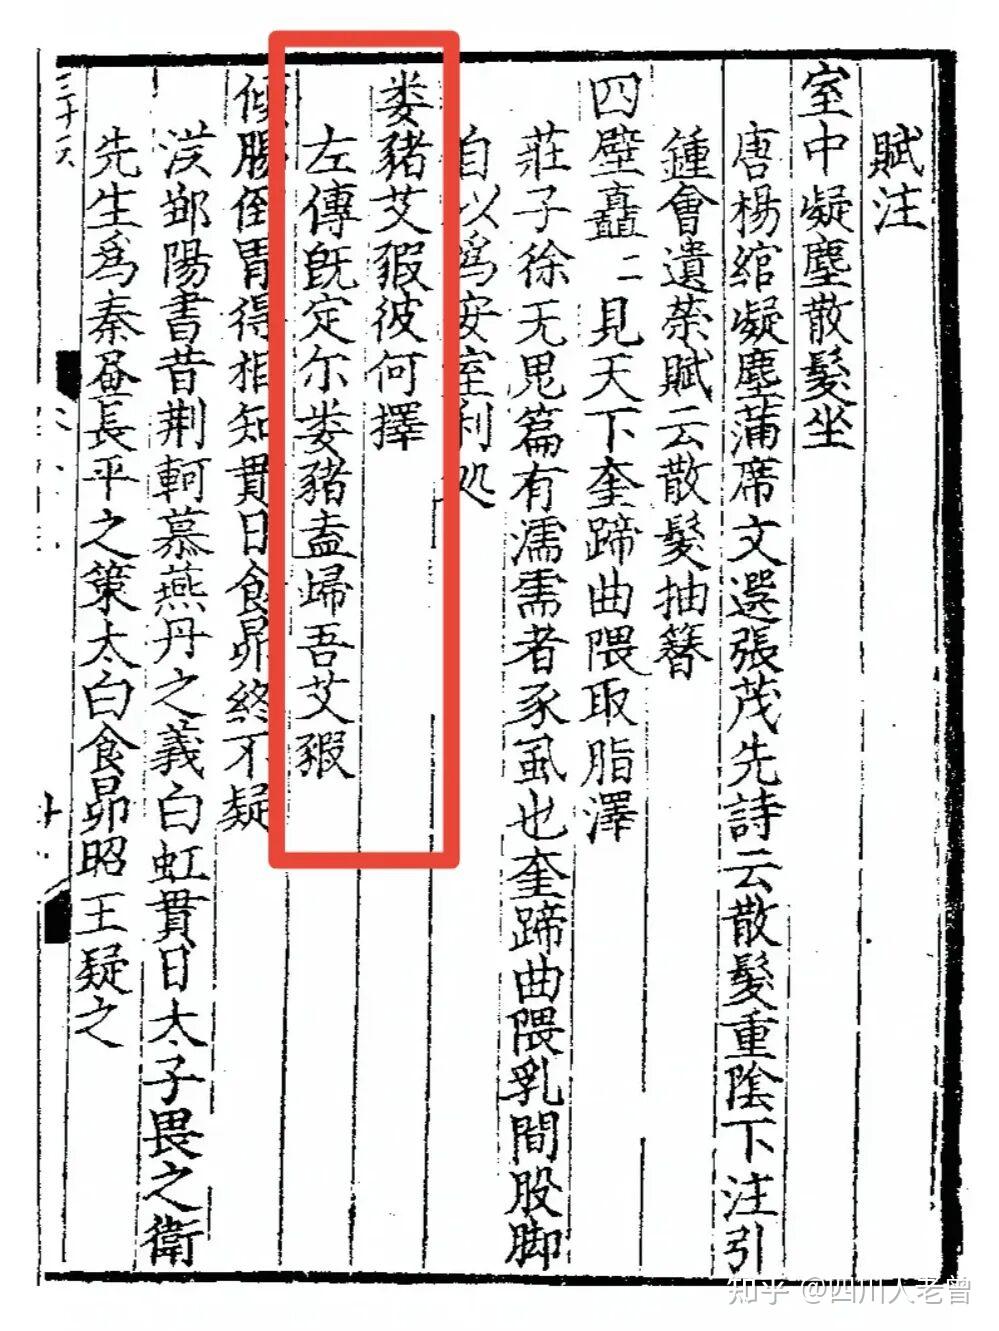 賦注
室中凝塵散髮坐
唐楊綰凝塵蒲席文選張茂先詩云散髮重陰下注引
鍾會遺榮賦云散髮抽簪
四壁矗〻見天下奎蹄曲隈取脂澤
莊子徐无鬼篇有濡需者豕虱也奎蹄曲隈乳間股脚
自以為安室利処
娄豬艾豭彼何擇
左傳既定尔娄豬盍歸吾艾豭
傾腸倒胃得相知貫日食昴終不疑
漢鄒陽書昔荆軻慕燕丹之義白虹貫日太子畏之衛
先生為秦畫長平之策太白食昴昭王疑之
知乎 @四川人老曾